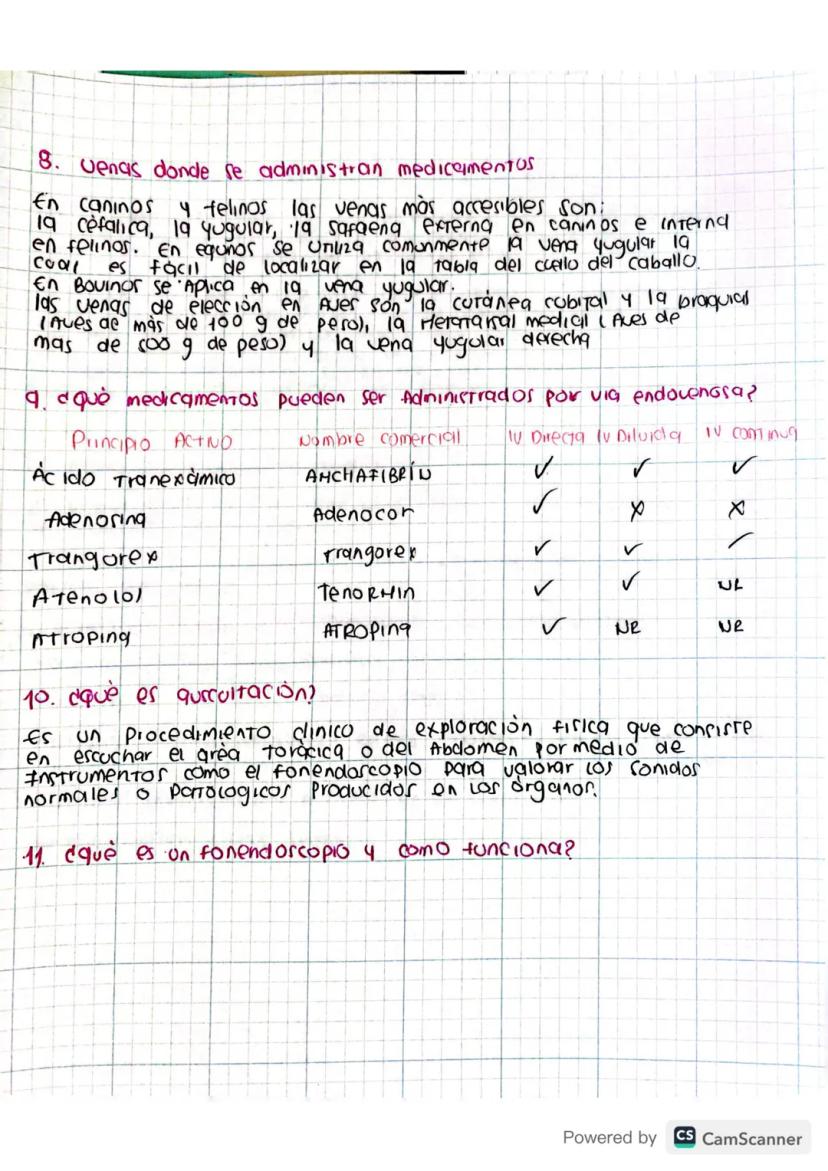 8. Venas donde se administran medicamentos
En caninos y felinos las venas más accesibles son:
la cefálica, la yugular, la safaena externa en caninos e interna
en felinos. En equnos se utiliza comunmente la vena yugular la
cual es fácil de localizar en la tabla del cuello del caballo.
En Bovinos se Aplica en la vena yugular.
las venas de elección en Aves son la cutánea cubital y la braquial
(Aves de más de 100 g de peso), la Metatarsal medical (Aves de
mas de 500 g de peso) y la vena yugular derecha
9. ¿què medicamentos pueden ser Administrados por via endovenosa?
Principio Activo Nombre comercial IV Directa IV Diluida IV continua
Àcido Tranexàmico ANCHAFIBRÍN ✓ ✓ ✓
Adenosina Adenocor ✓ x x
Trangorex Trangorex ✓ ✓ /
Atenolol Tenormin ✓ ✓ NR
Atropina ATROPina ✓ NR NR
10. ¿què es auscultaciòn?
Es un Procedimiento clinico de exploración fisica que consiste
en escuchar el area toràcica o del Abdomen por medio de
Instrumentos como el fonendoscopio para valorar los sonidos
normales o patologicos Producidos en los òrganos.
11. ¿què es un fonendoscopio y como funciona?
Powered by CS CamScanner